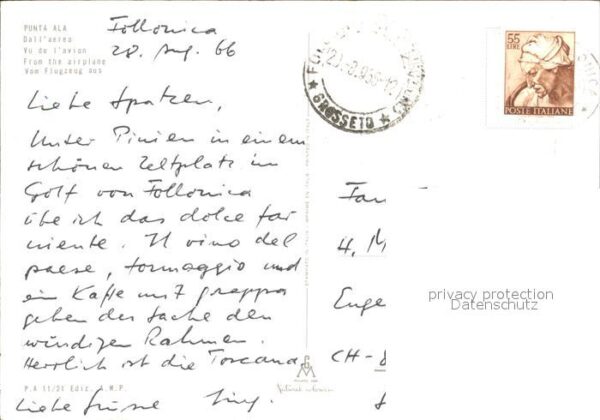 PUNTA ALA
Dall'aereo
Vu de l'avion
From the airplane
Vom Flugzeug aus
Follonica
28. Aug. 66
Liebe Spatzen,
Unter Pinien in einem
schönen Zeltplatz im
Golf von Follonica
übe ich das dolce far
niente. Il vino del
paese, formaggio und
ein Kaffe mit grappa
geben der Sache den
würdigen Rahmen.
Herrlich ist die Toscana
Liebe Grüsse
P.A 11/21 Ediz. A.M.P.
GROSSETO
55
LIRE
POSTE ITALIANE
Fan
4, M
Euge
CH-8
privacy protection
Datenschutz